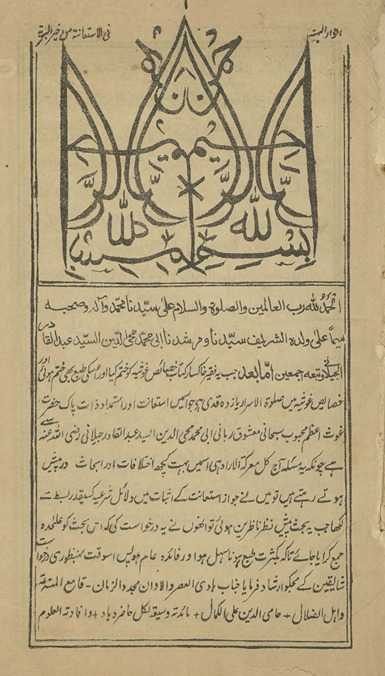 انوار البهية
فی الاستعانة من خیر البریة
بسم الله الرحمن الرحیم
الحمد لله رب العالمین والصلوة والسلام علی سیدنا محمد وآله وصحبه
علی ولده الشریف سیدنا ومرشدنا ابی محمد محی الدین السید عبد القادر
الجیلانی وتبعه اجمعین اما بعد جب یہ فقیر خاکسار کتاب خصائص غوثیہ کو ختم کیا اور اسکی طبع بھی ختم ہوئی اور
خصائص غوثیہ میں صلوة الاسرار یازدہ قدمی جو اسمیں استعانت اور استمداد ذات پاک حضرت
غوث اعظم محبوب سبحانی معشوق ربانی ابی محمد محی الدین السید عبد القادر جیلانی رضی الله عنہ سے
ہے چونکہ یہ مسئلہ آج کل معرکة الآرا ہو رہا ہے اسمیں بہت کچھ اختلافات اور ابحاث درپیش
ہوتے رہتے ہیں تو میں نے جواز استعانت کے اثبات میں دلائل شرعیہ کسیقدر بسط سے
لکھا جب یہ بحث پیش نظر ناظرین ہوئی تو انھوں نے یہ درخواست کی کہ اس بحث کو علحدہ
جمع کرایا جائے تاکہ بکثرت طبع ہونا سہل ہو اور فائدہ عام ہو پس اسوقت بمنظوری درخواست
شایقین کے مجھکو ارشاد فرمایا جناب ہادی العصر والاوان مجدد الزمان - قامع المبتدعة
واهل الضلال + حامی الدین علی الکمال + مائدته وسیعة لکل حاضر و باد + وافادته العلوم